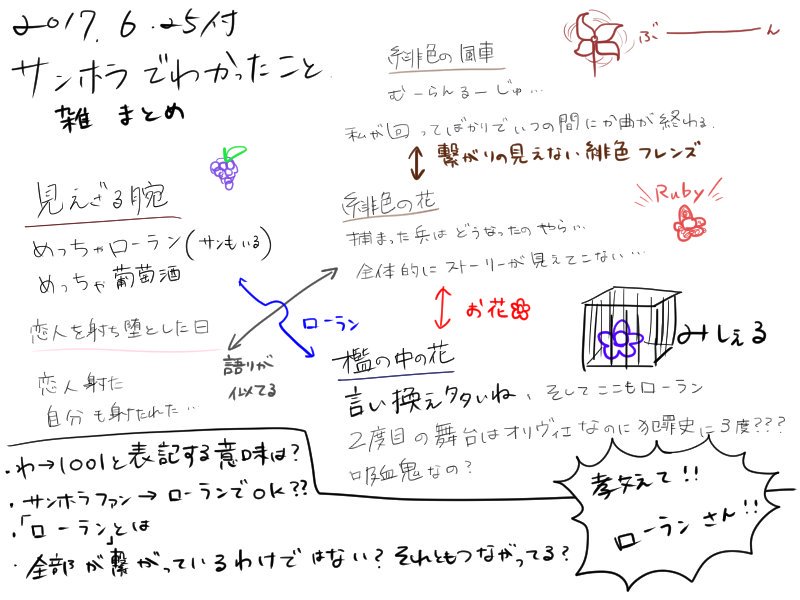 2017.6.25付
サンホラでわかったこと
雑 まとめ
緋色の風車
ぶーーん
むーらんるーじゅ…
私が回ってばかりでいつの間にか曲が終わる.
繋がりの見えない緋色フレンズ
見えざる腕
めっちゃローラン(サンもいる)
めっちゃ葡萄酒
緋色の花
Ruby
捕まった兵はどうなったのやら…
全体的にストーリーが見えてこない…
お花
恋人を射ち堕とした日
恋人射た
自分も射たれた…
語りが
似てる
ローラン
檻の中の花
みしぇる
言い換え多いね、そしてここもローラン
2度目の舞台はオリヴィエなのに犯罪史に3度???
吸血鬼なの?
・わ→1001と表記する意味は?
・サンホラファン→ローランでOK??
・「ローラン」とは
・全部が繋がっているわけではない?それともつながってる?
教えて!!
ローランさん!!